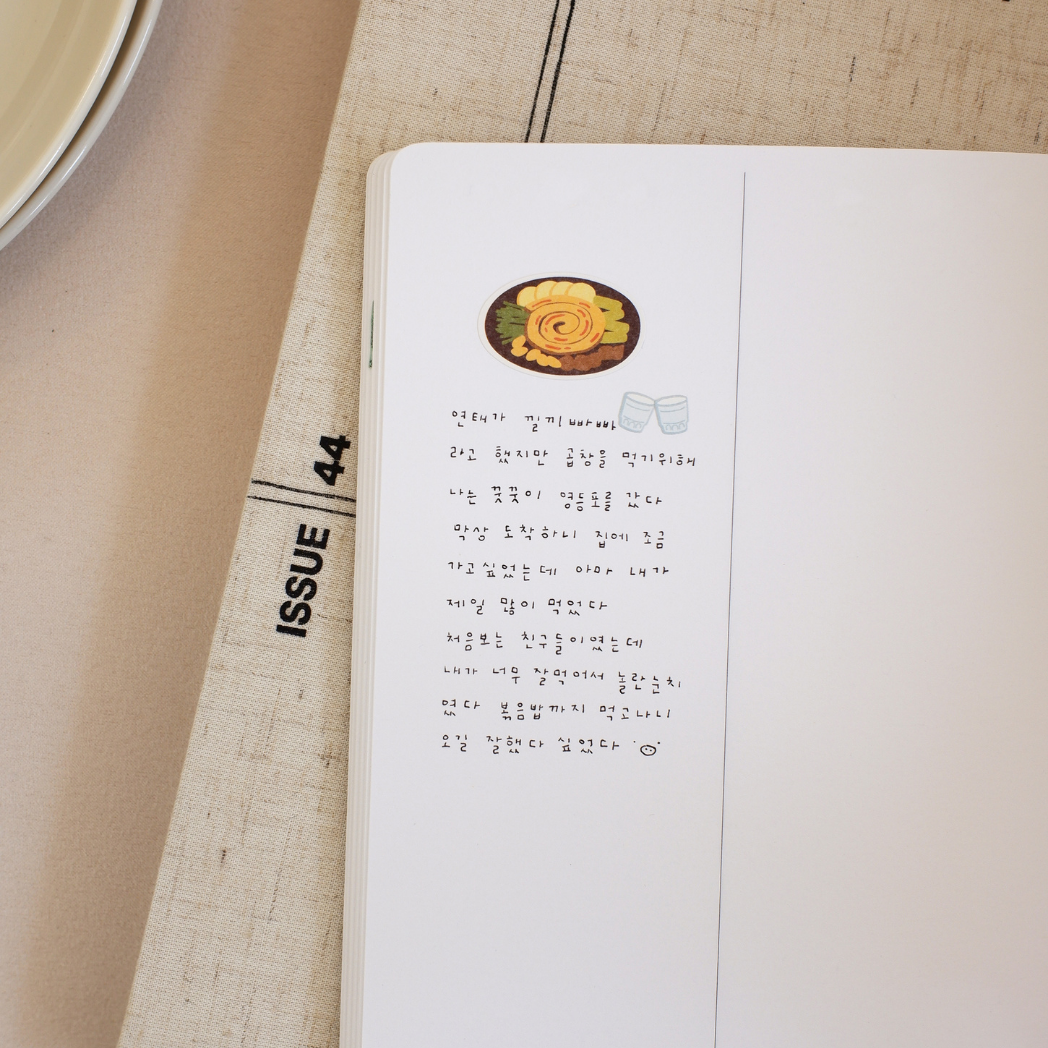 연태가 낄끼빠빠
라고 했지만 곱창을 먹기위해
나는 꿋꿋이 영등포를 갔다
막상 도착하니 집에 조금
가고싶었는데 아마 내가
제일 많이 먹었다
처음보는 친구들이였는데
내가 너무 잘먹어서 놀란눈치
였다 볶음밥까지 먹고나니
오길 잘했다 싶었다
ISSUE 44